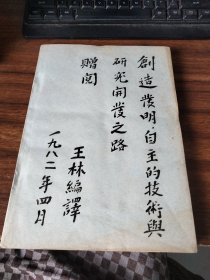 創造发明自主的技術與
研究開发之路
赠阅
王林編譯
一九八二年四月